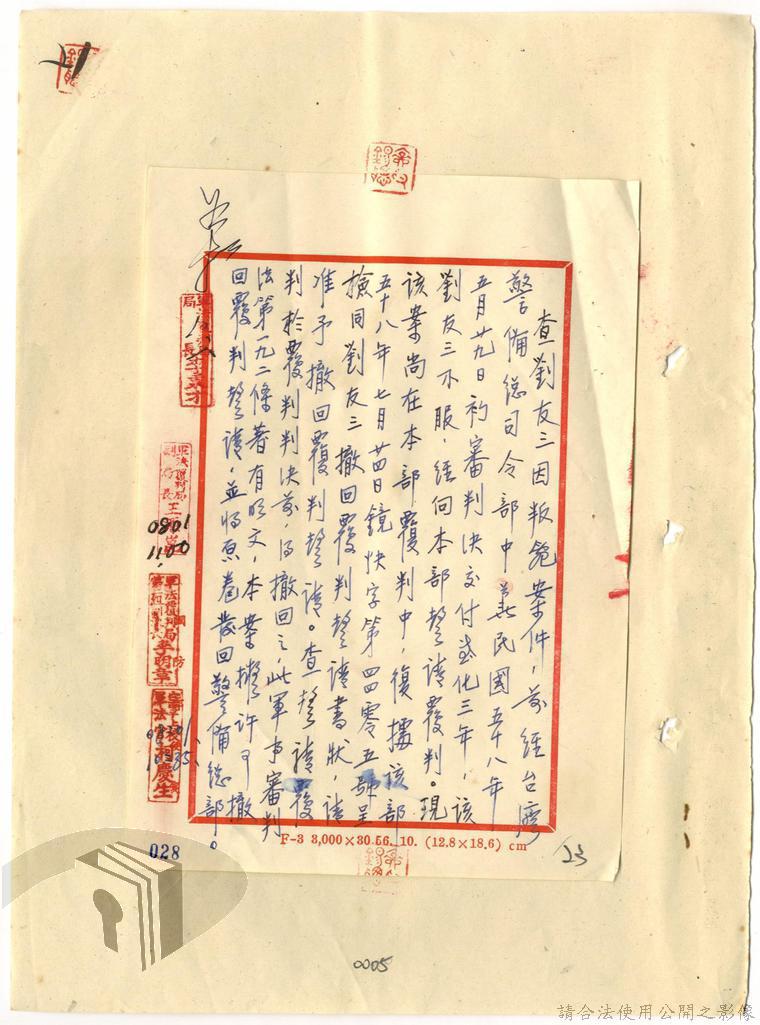 查劉友三因叛亂案件，前經台灣
警備總司令部中華民國五十八年
五月廿九日初審判決交付感化三年，該
劉友三不服，經向本部聲請覆判。現
該案尚在本部覆判中，復據該部
五十八年七月廿四日鏡快字第四四零五號呈
檢同劉友三撤回覆判聲請書狀，請
准予撤回覆判聲請。查聲請覆
判於覆判判決前，得撤回之，此軍事審判
法第一九二條著有明文，本案擬許可撤
回覆判聲請，並將原卷發回警備總部。
0801
1100
李明章
028
F-3 3,000×30.56. 10. (12.8×18.6) cm
23
0005
請合法使用公開之影像